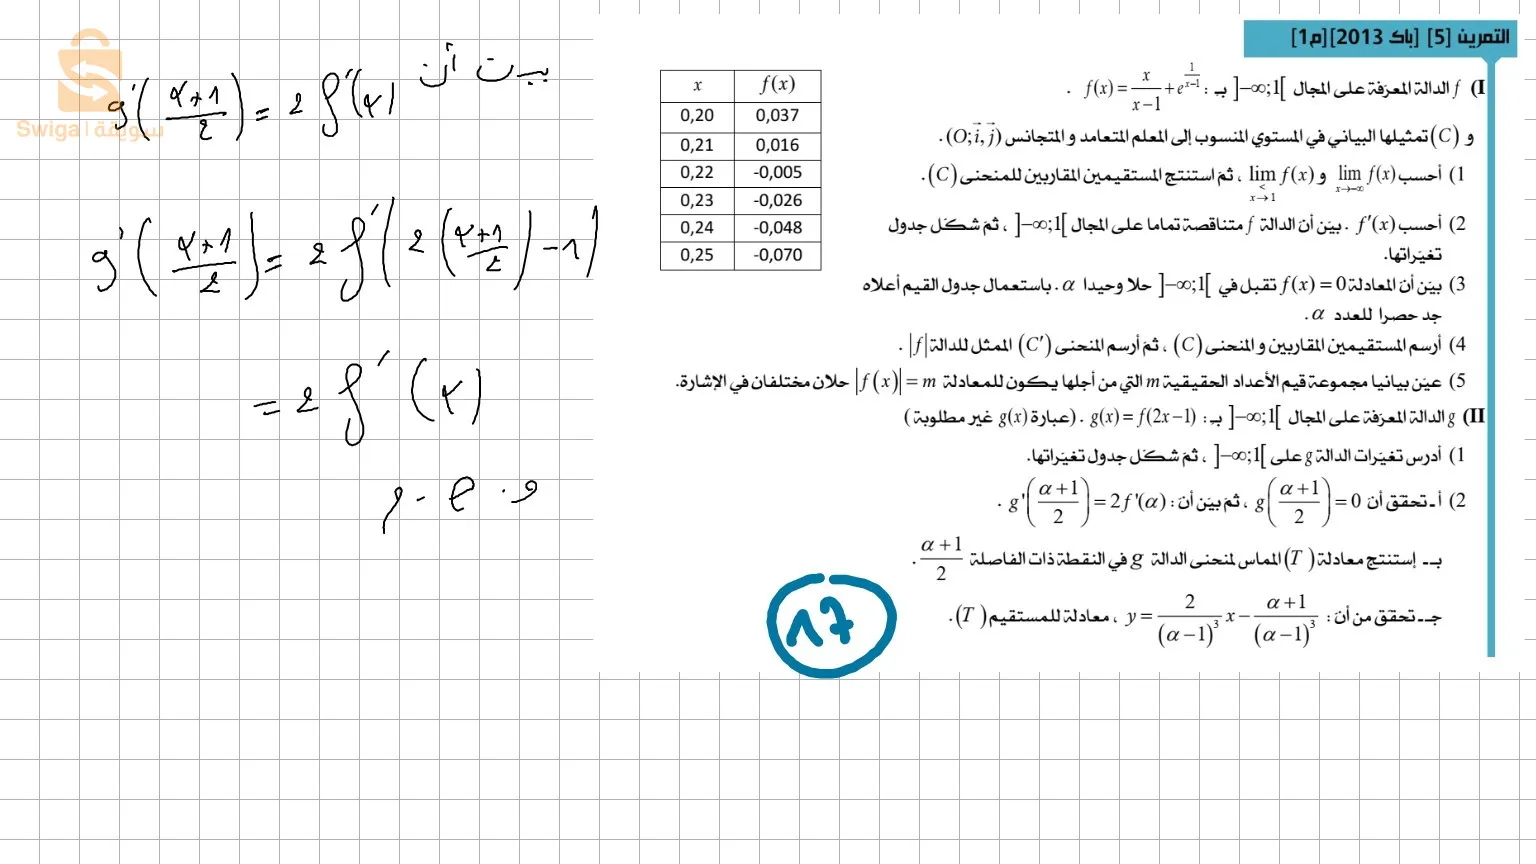 التمرين [5] [باك 2013][م1]
I) f الدالة المعرفة على المجال ]-∞;1[ بـ : f(x) = x/(x-1) + e^(1/(x-1)) .
و (C) تمثيلها البياني في المستوي المنسوب إلى المعلم المتعامد و المتجانس (O; i⃗, j⃗).
1) أحسب lim_{x→-∞} f(x) و lim_{x→1}^{<} f(x) ، ثم استنتج المستقيمين المقاربين للمنحنى (C).
2) أحسب f'(x) . بيّن أن الدالة f متناقصة تماما على المجال ]-∞;1[ ، ثمّ شكّل جدول
تغيّراتها.
3) بيّن أن المعادلة f(x) = 0 تقبل في ]-∞;1[ حلا وحيدا α. باستعمال جدول القيم أعلاه
جد حصرا للعدد α.
4) أرسم المستقيمين المقاربين و المنحنى (C) ، ثمّ أرسم المنحنى (C') الممثل للدالة |f| .
5) عيّن بيانيا مجموعة قيم الأعداد الحقيقية m التي من أجلها يكون للمعادلة |f(x)| = m حلان مختلفان في الإشارة.
II) g الدالة المعرفة على المجال ]-∞;1[ بـ : g(x) = f(2x-1) . (عبارة g(x) غير مطلوبة)
1) أدرس تغيّرات الدالة g على ]-∞;1[ ، ثمّ شكّل جدول تغيّراتها.
2) أ ـ تحقق أن g((α+1)/2) = 0 ، ثمّ بيّن أنّ : g'((α+1)/2) = 2f'(α) .
بـ ـ إستنتج معادلة (T) المماس لمنحنى الدالة g في النقطة ذات الفاصلة (α+1)/2 .
جـ ـ تحقّق من أنّ : y = 2/(α-1)³ x - (α+1)/(α-1)³ ، معادلة للمستقيم (T).
x f(x)
0,20 0,037
0,21 0,016
0,22 -0,005
0,23 -0,026
0,24 -0,048
0,25 -0,070
17
بيت أن g'((α+1)/2) = 2 f'(α)
g'((α+1)/2) = 2 f'(2((α+1)/2) - 1)
= 2 f'(α)
و. ه. م
Swiga | سويقة